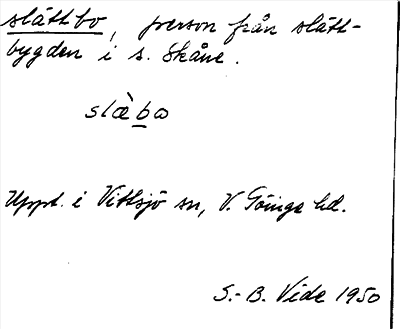 slättbo, person från slätt-
bygden i s. Skåne.
slæ̀bo
Uppt. i Vittsjö sn, V. Göinge hd.
S.-B. Vide 1950